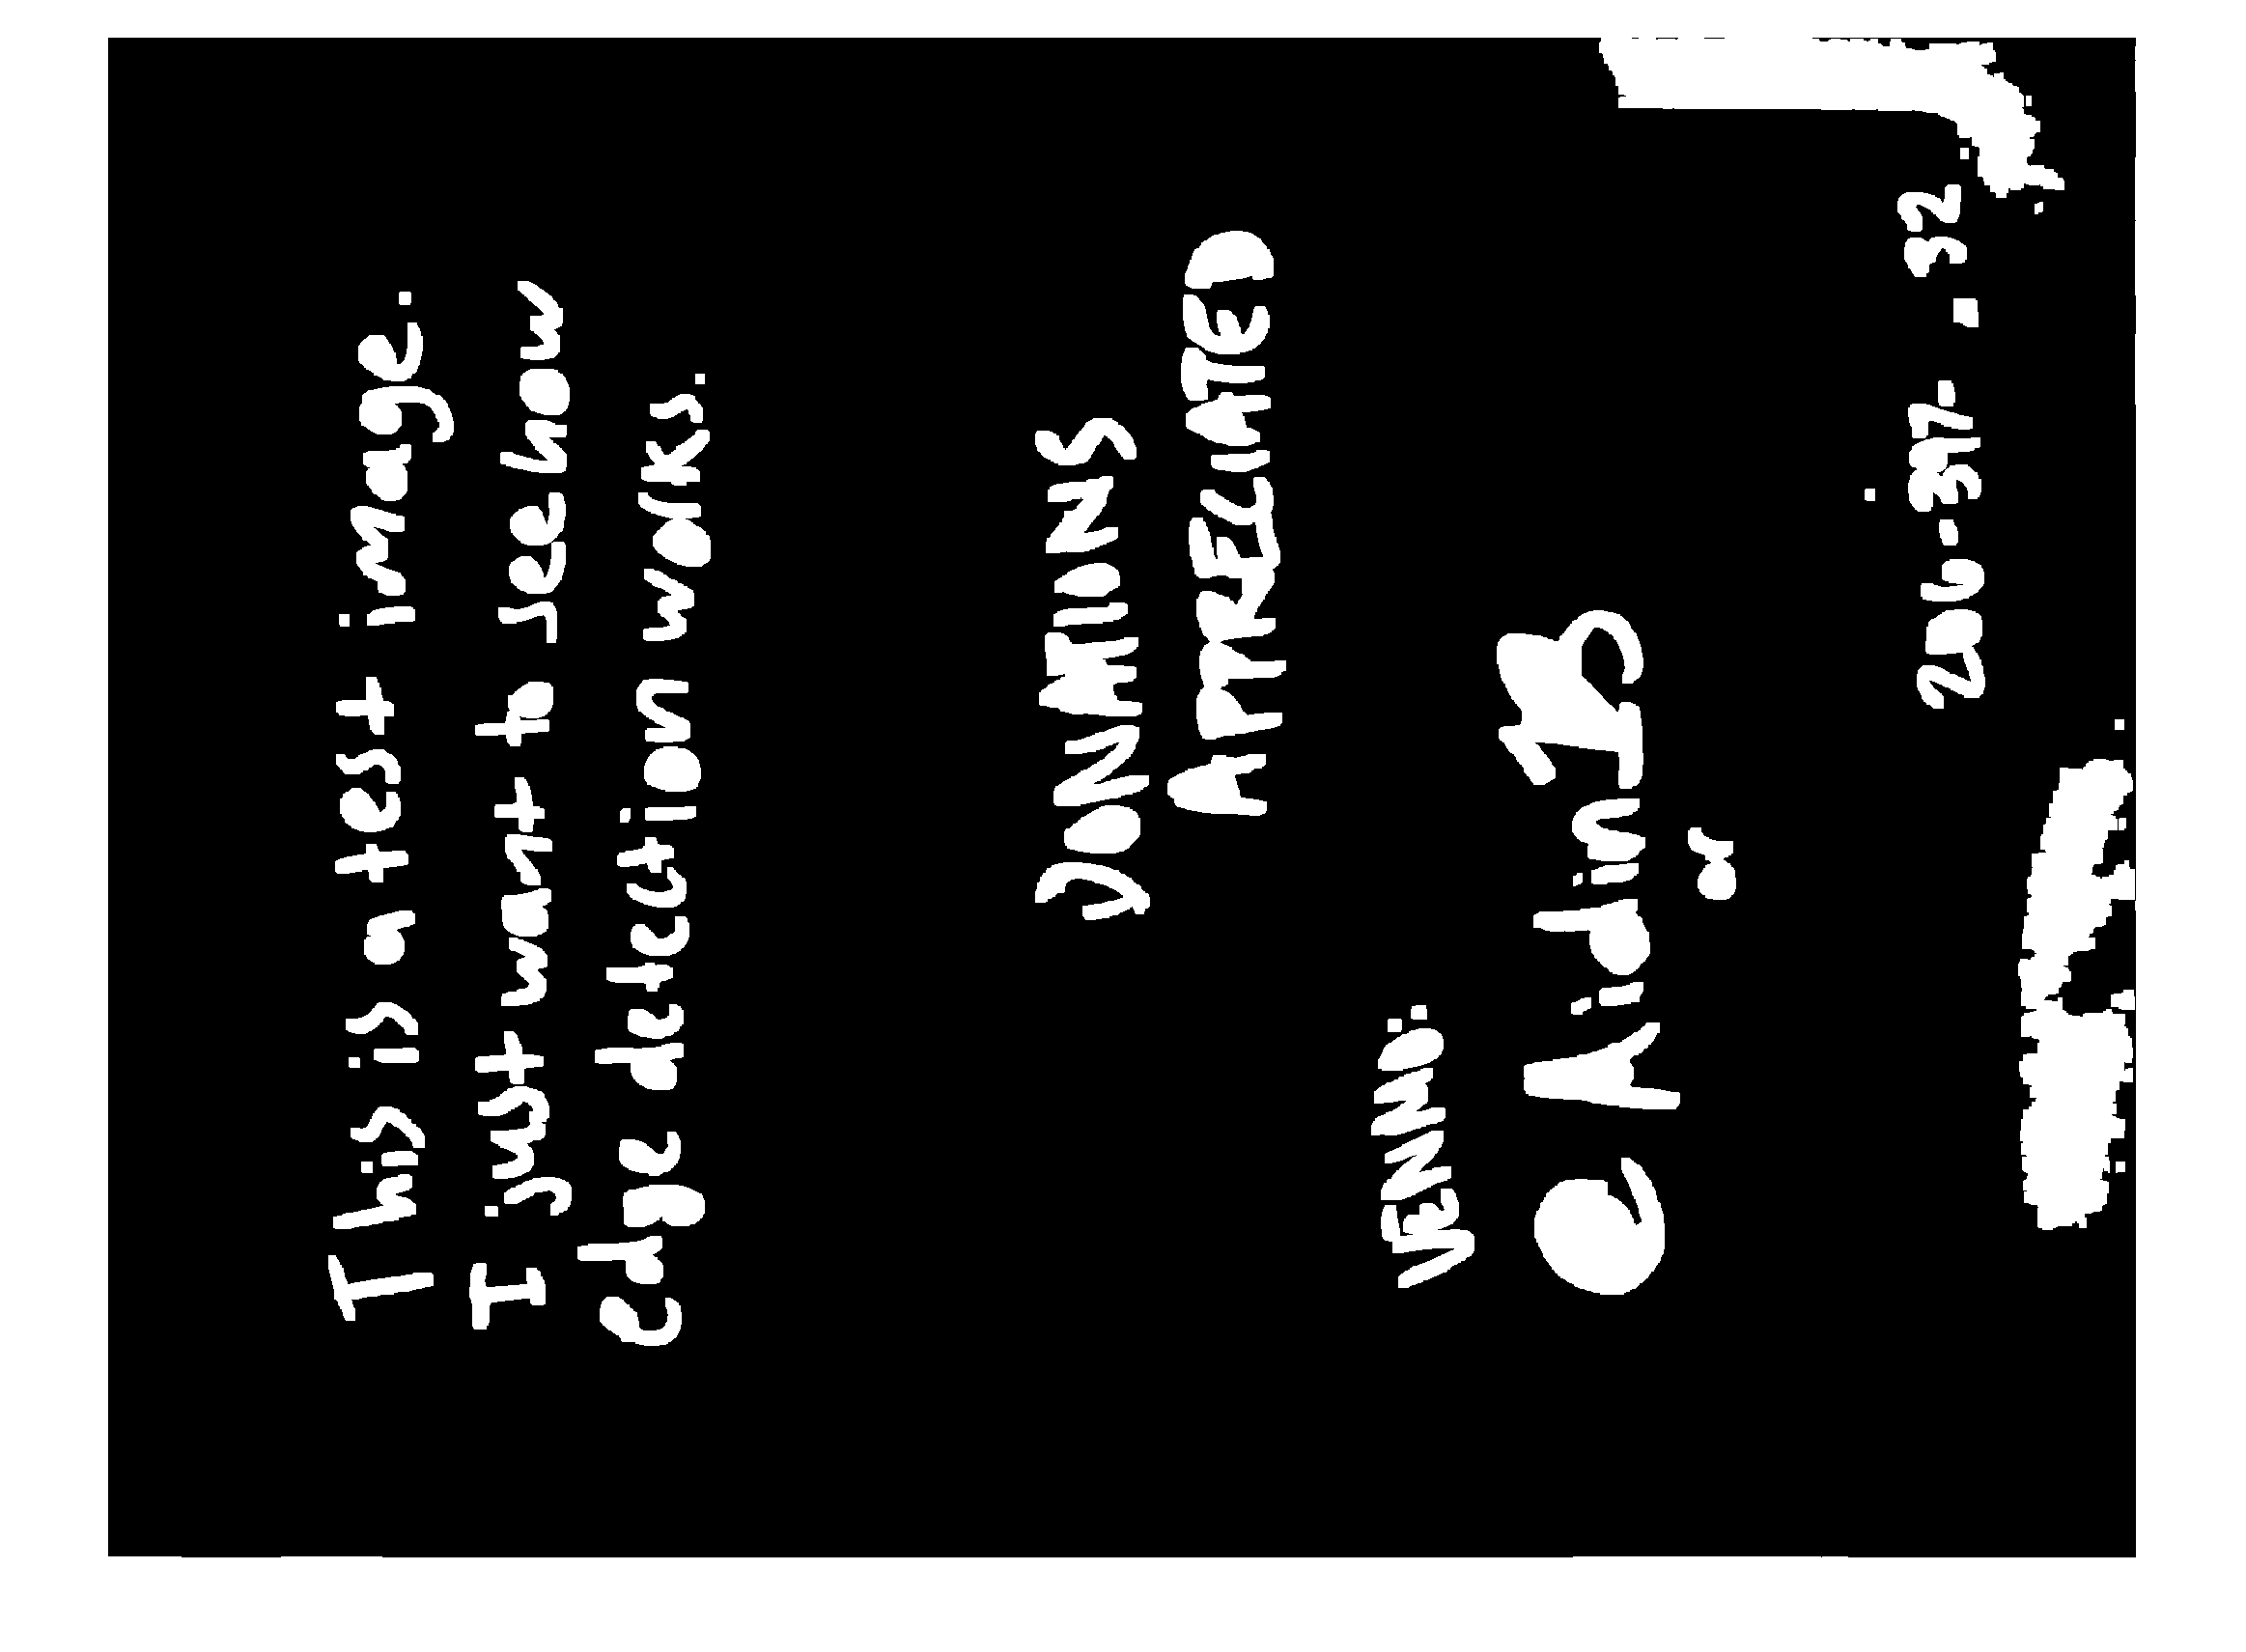 This is a test image.
I just want to see how
edge detection works.
DONATIONS
APPRECIATED
VENMO:
or